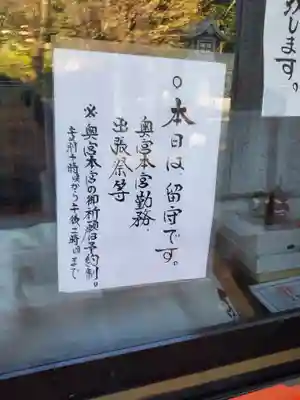 ○本日は留守です。
奥宮本宮勤務、
出張祭等
※奥宮本宮の御祈願は予約制。
午前十時頃から午後三時頃まで
します。